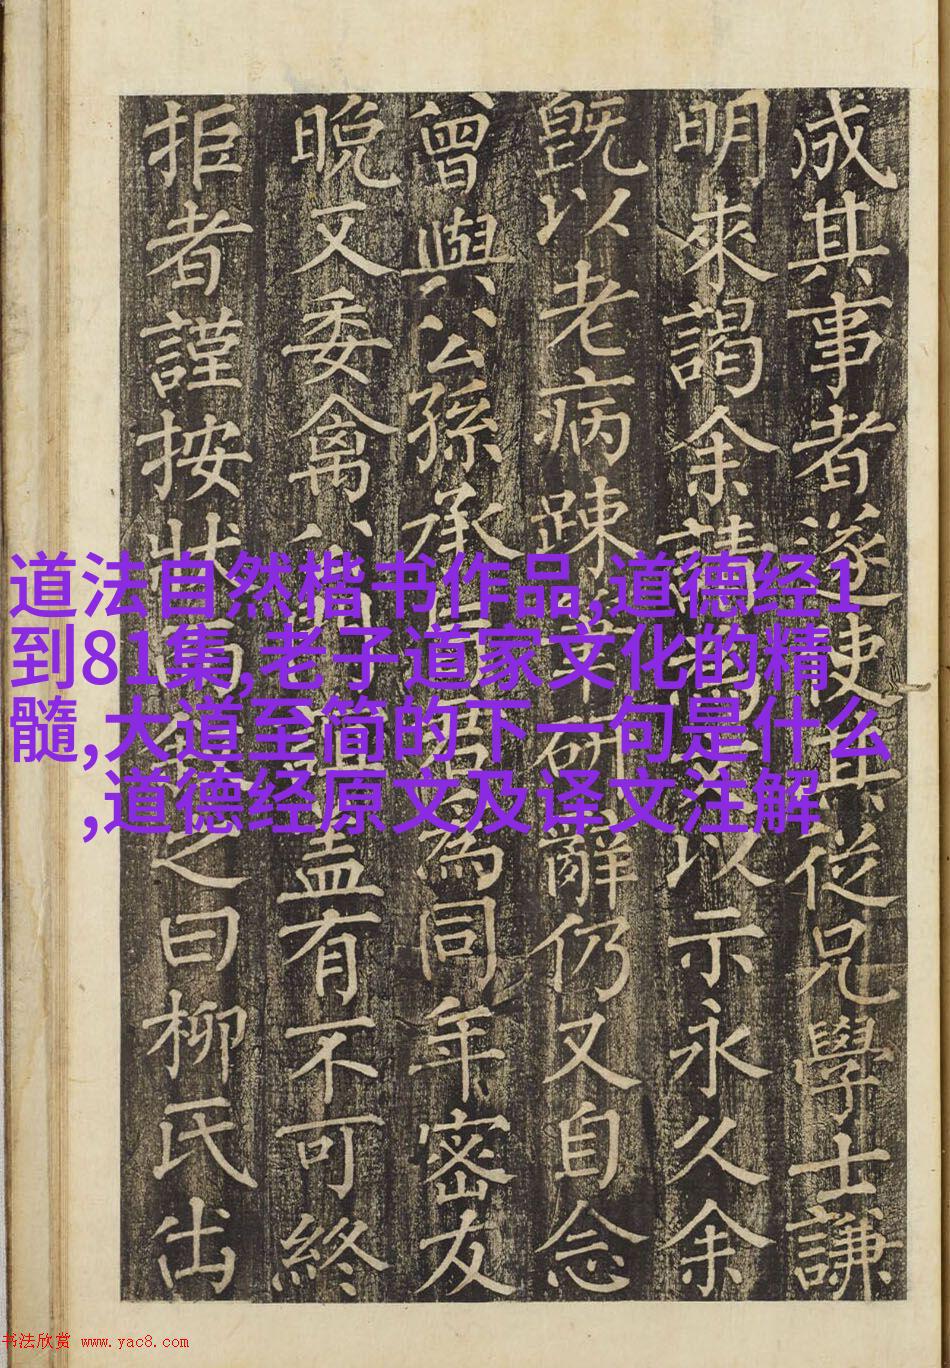 成其事者遂使其從兄學士謙
明來謁余請以示永久余
既以老病踈研辭仍又自念
曾與公孫承為同年密友
晚又委禽盖有不可終
拒者謹按狀之曰柳氏出
道法自然楷书作品,道德经1
到81集,老子道家文化的精
髓,大道至简的下一句是什么
,道德经原文及译文注解
书法欣赏 www.yac8.com